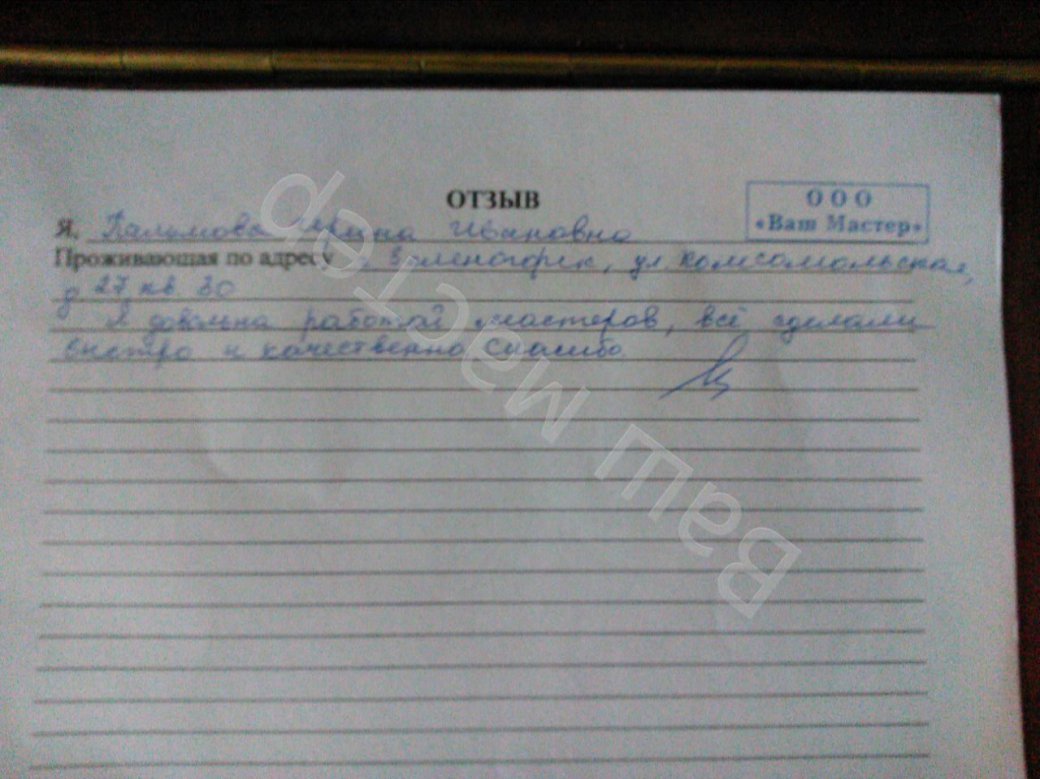 ОТЗЫВ
ООО
«Ваш Мастер»
Я, Ирина Ивановна
Проживающая по адресу г. Зеленогорск, ул. Комсомольская,
д 27, кв. 30
Я довольна работой мастеров, всё сделали
быстро и качественно спасибо
Ваш мастер